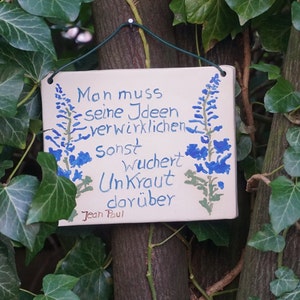 Man muss
seine Ideen
verwirklichen
sonst
wuchert
Unkraut
darüber
Jean Paul